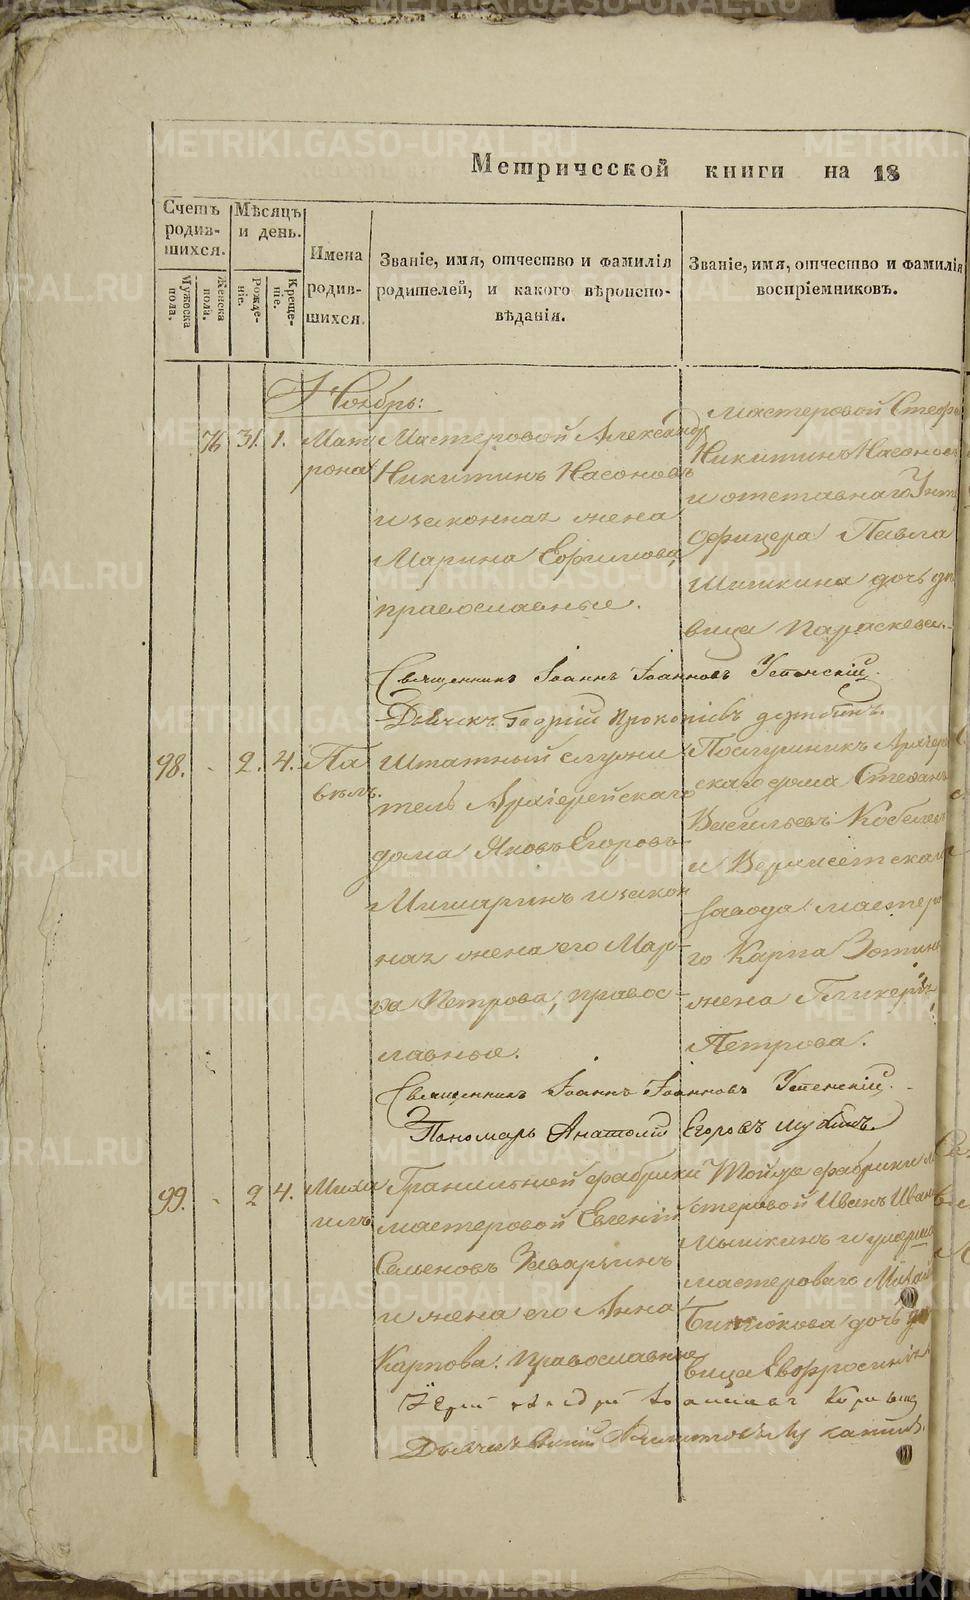 METRIKI.GASO-URAL.RU
Метрической книги на 18
Счетъ родив-шихся.
Мужеска пола.
Женска пола.
Мѣсяцъ и день.
Рожде-ніе.
Креще-ніе.
Имена родив-шихся.
Званіе, имя, отчество и фамилія
родителей, и какого вѣроиспо-
вѣданія.
Званіе, имя, отчество и фамилія
воспріемниковъ.
Ноябрь:
76 31. 1. Мат
рона
Мастеровой Александръ
Никитинъ Насоновъ
и законная жена
Марина Ефимова,
православные.
Мастеровой Стеф
Никитинъ Насонов
и отставнаго Унт
офицера Павла
Шишкина дочь дѣ
вица Параскева.
Священникъ Іоаннъ Іоанновъ Успенскій.
Дьячекъ Георгій Прокопіевъ
98. - 2. 4. Па
велъ.
Штатный служи
тель Архіерейскаго
дома Яковъ Егоровъ
Мишаринъ и закон
ная жена его Мар-
ѳа Петрова, правос-
лавные.
Послушникъ Архіере
скаго дома Степанъ
Васильевъ Кобелев
и Верхисетскаго
завода мастеро
го Карпа Зотина
жена Гликерія
Петрова.
Священникъ Іоаннъ Іоанновъ Успенскій.
Пономарь Анатолій Егоровъ
99. - 2 4. Миха
илъ
Гранильной фабрики
мастеровой Евгеній
Семеновъ
и жена его Анна
Карпова. Православные
Той же фабрики ма
стеровой Иванъ Иван
Мышкинъ и умерша
мастероваго Михаи
дочь дѣ
вица Евфросинія
Іерей
Дьячекъ